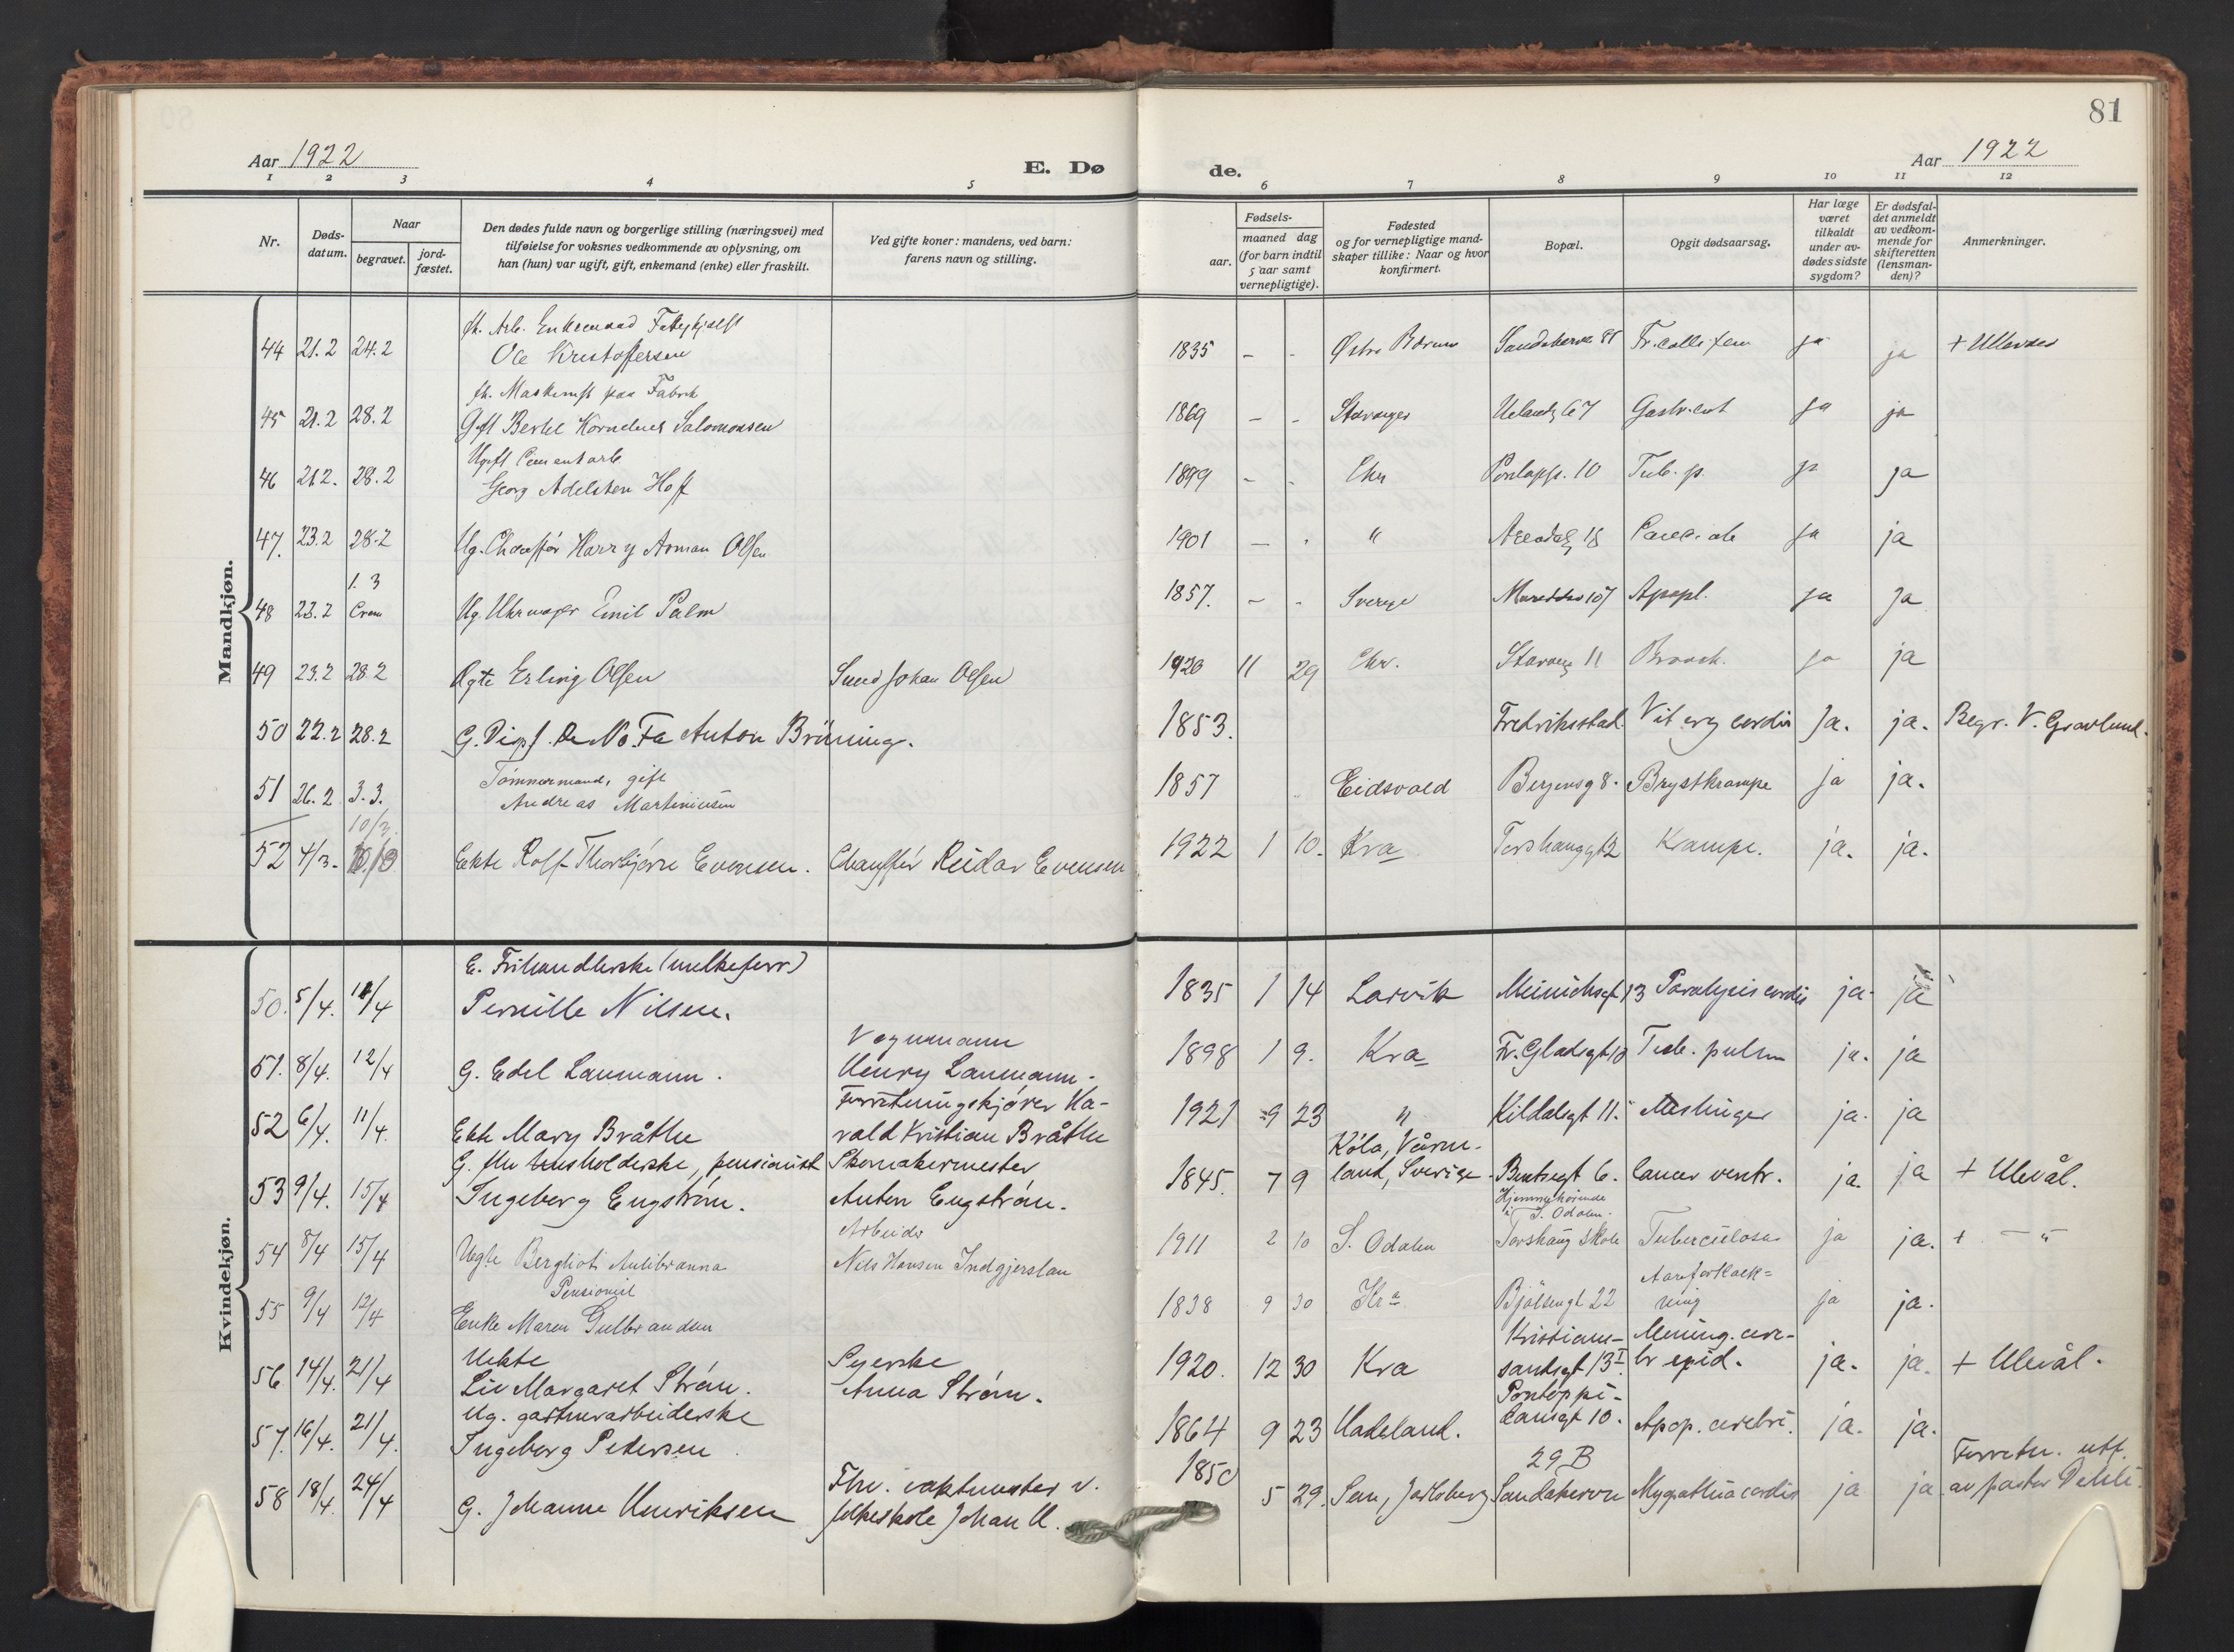 81
Aar 1922
E. Dø
de.
Aar 1922
1 2 3 4 5 6 7 8 9 10 11 12
Nr.
Døds-
datum.
Naar
begravet.
jord-
fæstet.
Den dødes fulde navn og borgerlige stilling (næringsvei) med
tilføielse for voksnes vedkommende av oplysning, om
han (hun) var ugift, gift, enkemand (enke) eller fraskilt.
Ved gifte koner: mandens, ved barn:
farens navn og stilling.
Fødsels-
aar.
maaned dag
(for barn indtil
5 aar samt
vernepligtige).
Fødested
og for vernepligtige mand-
skaper tillike: Naar og hvor
konfirmert.
Bopæl.
Opgit dødsaarsag.
Har læge
været
tilkaldt
under av-
dødes sidste
sygdom?
Er dødsfal-
det anmeldt
av vedkom-
mende for
skifteretten
(lensman-
den)?
Anmerkninger.
Mandkjøn.
fh. Arb. Enkemand
44 21.2 24.2 Ole Kristoffersen 1835 - - Østre Bærum 85 ja ja +
fh. paa Fabrik
45 21.2 28.2 Gift Bertel Kornelius Salomonsen 1869 - - Stavanger Uelandsg 67 ja ja
Ugift Cementarb
46 21.2. 28.2 Georg Adelsten Hoff 1899 - - Chr 10 Tub. p. ja ja
47. 23.2 28.2 Ug. Chauffør Harry Arman Olsen 1901 - " " 18 ja ja
1.3
48 23.2 Crem Ug. Uhrmager Emil Palm 1857. - - Sverige 107 Apopl. ja ja
49 23.2 28.2 Ægte Erling Olsen Smed Johan Olsen 1920 11 29 Chr. Stavangg 11 Bronch. ja ja
50 22.2 28.2 G. Disp. f. De No. Fa Anton Brüning. 1853. Fredriksstad. Vit org cordis Ja. ja. Begr. V. Gravlund.
Tømmermand, gift
51 26.2 3.3. Andreas Martiniusen 1857 Eidsvold Bergensg 8. Brystkrampe ja ja.
10/3.
52 4/3. Ekte Rolf Thorbjørn Evensen. Chauffør Reidar Evensen 1922 1 10. Kra Torshauggt 2 Krampe. ja. ja.
Kvindekjøn.
E. Frihandlerske (melkeforr)
50. 5/4. 11/4 Pernille Nilsen. 1835 1 14 Larvik Meinichsgt 13 Paralysis cordis ja. ja
Vognmann
51. 8/4. 12/4 G. Edel Laumann. Henry Laumann. 1898 1 9. Kra Fr. Gladsgt 10 Tub. pulm ja. ja
Forretningskjører Ha-
52 6/4. 11/4. Ekte Mary Bråthe rald Kristian Bråthe 1921 9 23 " Kildalsgt 11. Meslinger ja. ja
G. fhv husholderske, pensionist Skomakermester Køla, Värm-
53 9/4. 15/4 Ingeborg Engstrøm. Anton Engstrøm. 1845. 7 9 land, Sverige. Bentsegt 6. Cancer ventr. ja. ja + Ulevål.
Hjemmehørende
i S. Odalen.
Arbeider
54 8/4 15/4 Uegte Bergliot Nils Hansen Indgjerslan 1911 2 10 S. Odalen Torshaug Skole Tuberculosa ja ja. + — "
Pensionist Aareforkalk=
55 9/4 12/4 Enke Maren Gulbrandsen 1838 9 30 Kra. Bjølsengt 22 ning ja ja.
Uekte Syerske Kristian- Mening. cere-
56 14/4. 21/4 Liv Margaret Strøm. Anna Strøm. 1920. 12 30 Kra sandsgt 13 I. br epid. ja. ja. + Ulevål.
Ug. gartnerarbeiderske Pontoppi-
57. 16/4. 21/4. Ingeborg Pedersen 1864 9 23 Hadeland. dansgt 10. Apop. cerebri. ja. ja.
Fhv. vaktmester v. 1850 29 B Forretn. utf.
58 18/4. 24/4 G. Johanne Henriksen folkeskole Johan H. 5 29. Sem, Jarlsberg Sandakervn Myopathia cordis ja ja. av pastor Dehli.